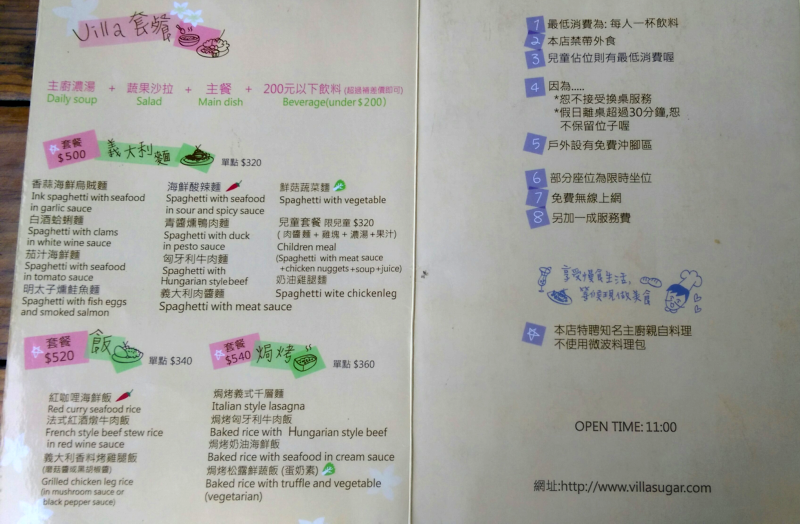 Villa 套餐
主廚濃湯 + 蔬果沙拉 + 主餐 + 200元以下飲料 (超過補差價即可)
Daily soup Salad Main dish Beverage(under$200)
套餐
$500
義大利麵
單點 $320
香蒜海鮮烏賊麵
Ink spaghetti with seafood
in garlic sauce
白酒蛤蜊麵
Spaghetti with clams
in white wine sauce
茄汁海鮮麵
Spaghetti with seafood
in tomato sauce
明太子燻鮭魚麵
Spaghetti with fish eggs
and smoked salmon
海鮮酸辣麵
Spaghetti with seafood
in sour and spicy sauce
青醬燻鴨肉麵
Spaghetti with duck
in pesto sauce
匈牙利牛肉麵
Spaghetti with
Hungarian style beef
義大利肉醬麵
Spaghetti with meat sauce
鮮菇蔬菜麵
Spaghetti with vegetable
兒童套餐 限兒童 $320
(肉醬麵+雞塊+濃湯+果汁)
Children meal
(Spaghetti with meat sauce
+chicken nuggets+soup+juice)
奶油雞腿麵
Spaghetti wite chickenleg
套餐
$520
飯
單點 $340
紅咖哩海鮮飯
Red curry seafood rice
法式紅酒燉牛肉飯
French style beef stew rice
in red wine sauce
義大利香料烤雞腿飯
(蘑菇醬或黑胡椒醬)
Grilled chicken leg rice
(in mushroom sauce or
black pepper sauce)
套餐
$540
焗烤
單點 $360
焗烤義式千層麵
Italian style lasagna
焗烤匈牙利牛肉飯
Baked rice with Hungarian style beef
焗烤奶油海鮮飯
Baked rice with seafood in cream sauce
焗烤松露鮮蔬飯 (蛋奶素)
Baked rice with truffle and vegetable
(vegetarian)
1 最低消費為: 每人一杯飲料
2 本店禁帶外食
3 兒童佔位則有最低消費喔
4 因為.....
*恕不接受換桌服務
*假日離桌超過30分鐘,恕
不保留位子喔
5 戶外設有免費沖腳區
6 部分座位為限時坐位
7 免費無線上網
8 另加一成服務費
享受慢食生活,
等候現做美食
本店特聘知名主廚親自料理
不使用微波料理包
OPEN TIME: 11:00
網址:http://www.villasugar.com